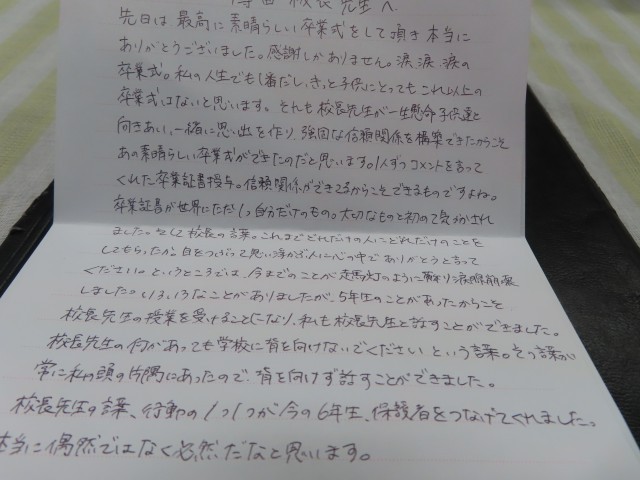 校長先生へ
先日は、最高に素晴らしい卒業式をして頂き本当に
ありがとうございました。感謝しかありません。涙、涙、涙の
卒業式。私の人生でも1番だし、きっと子供にとってもこれ以上の
卒業式はないと思います。それも校長先生が一生懸命子供達と
向きあい、一緒に思い出を作り、強固な信頼関係を構築できたからこそ
あの素晴らしい卒業式ができたのだと思います。1人ずつコメントを言って
くれた卒業証書授与。信頼関係ができてるからこそできるものですよね。
卒業証書が世界にただ1つ自分だけのもの。大切なものと初めて気づかされ
ました。そして校長の言葉。これまでどれだけの人にどれだけのことを
してもらったか。目をつぶって思い浮かぶ人に心の中でありがとうと言って
ください。というところでは、今までのことが走馬灯のように蘇り涙腺崩壊
しました。いろいろなことがありましたが、5年生のことがあったからこそ
校長先生の授業を受けることになり、私も校長先生と話すことができました。
校長先生の何があっても学校に背を向けないでくださいという言葉。その言葉が
常に私の頭の片隅にあったので、背を向けず話すことができました。
校長先生の言葉、行動の1つ1つが今の6年生、保護者をつなげてくれました。
本当に偶然ではなく必然だなと思います。